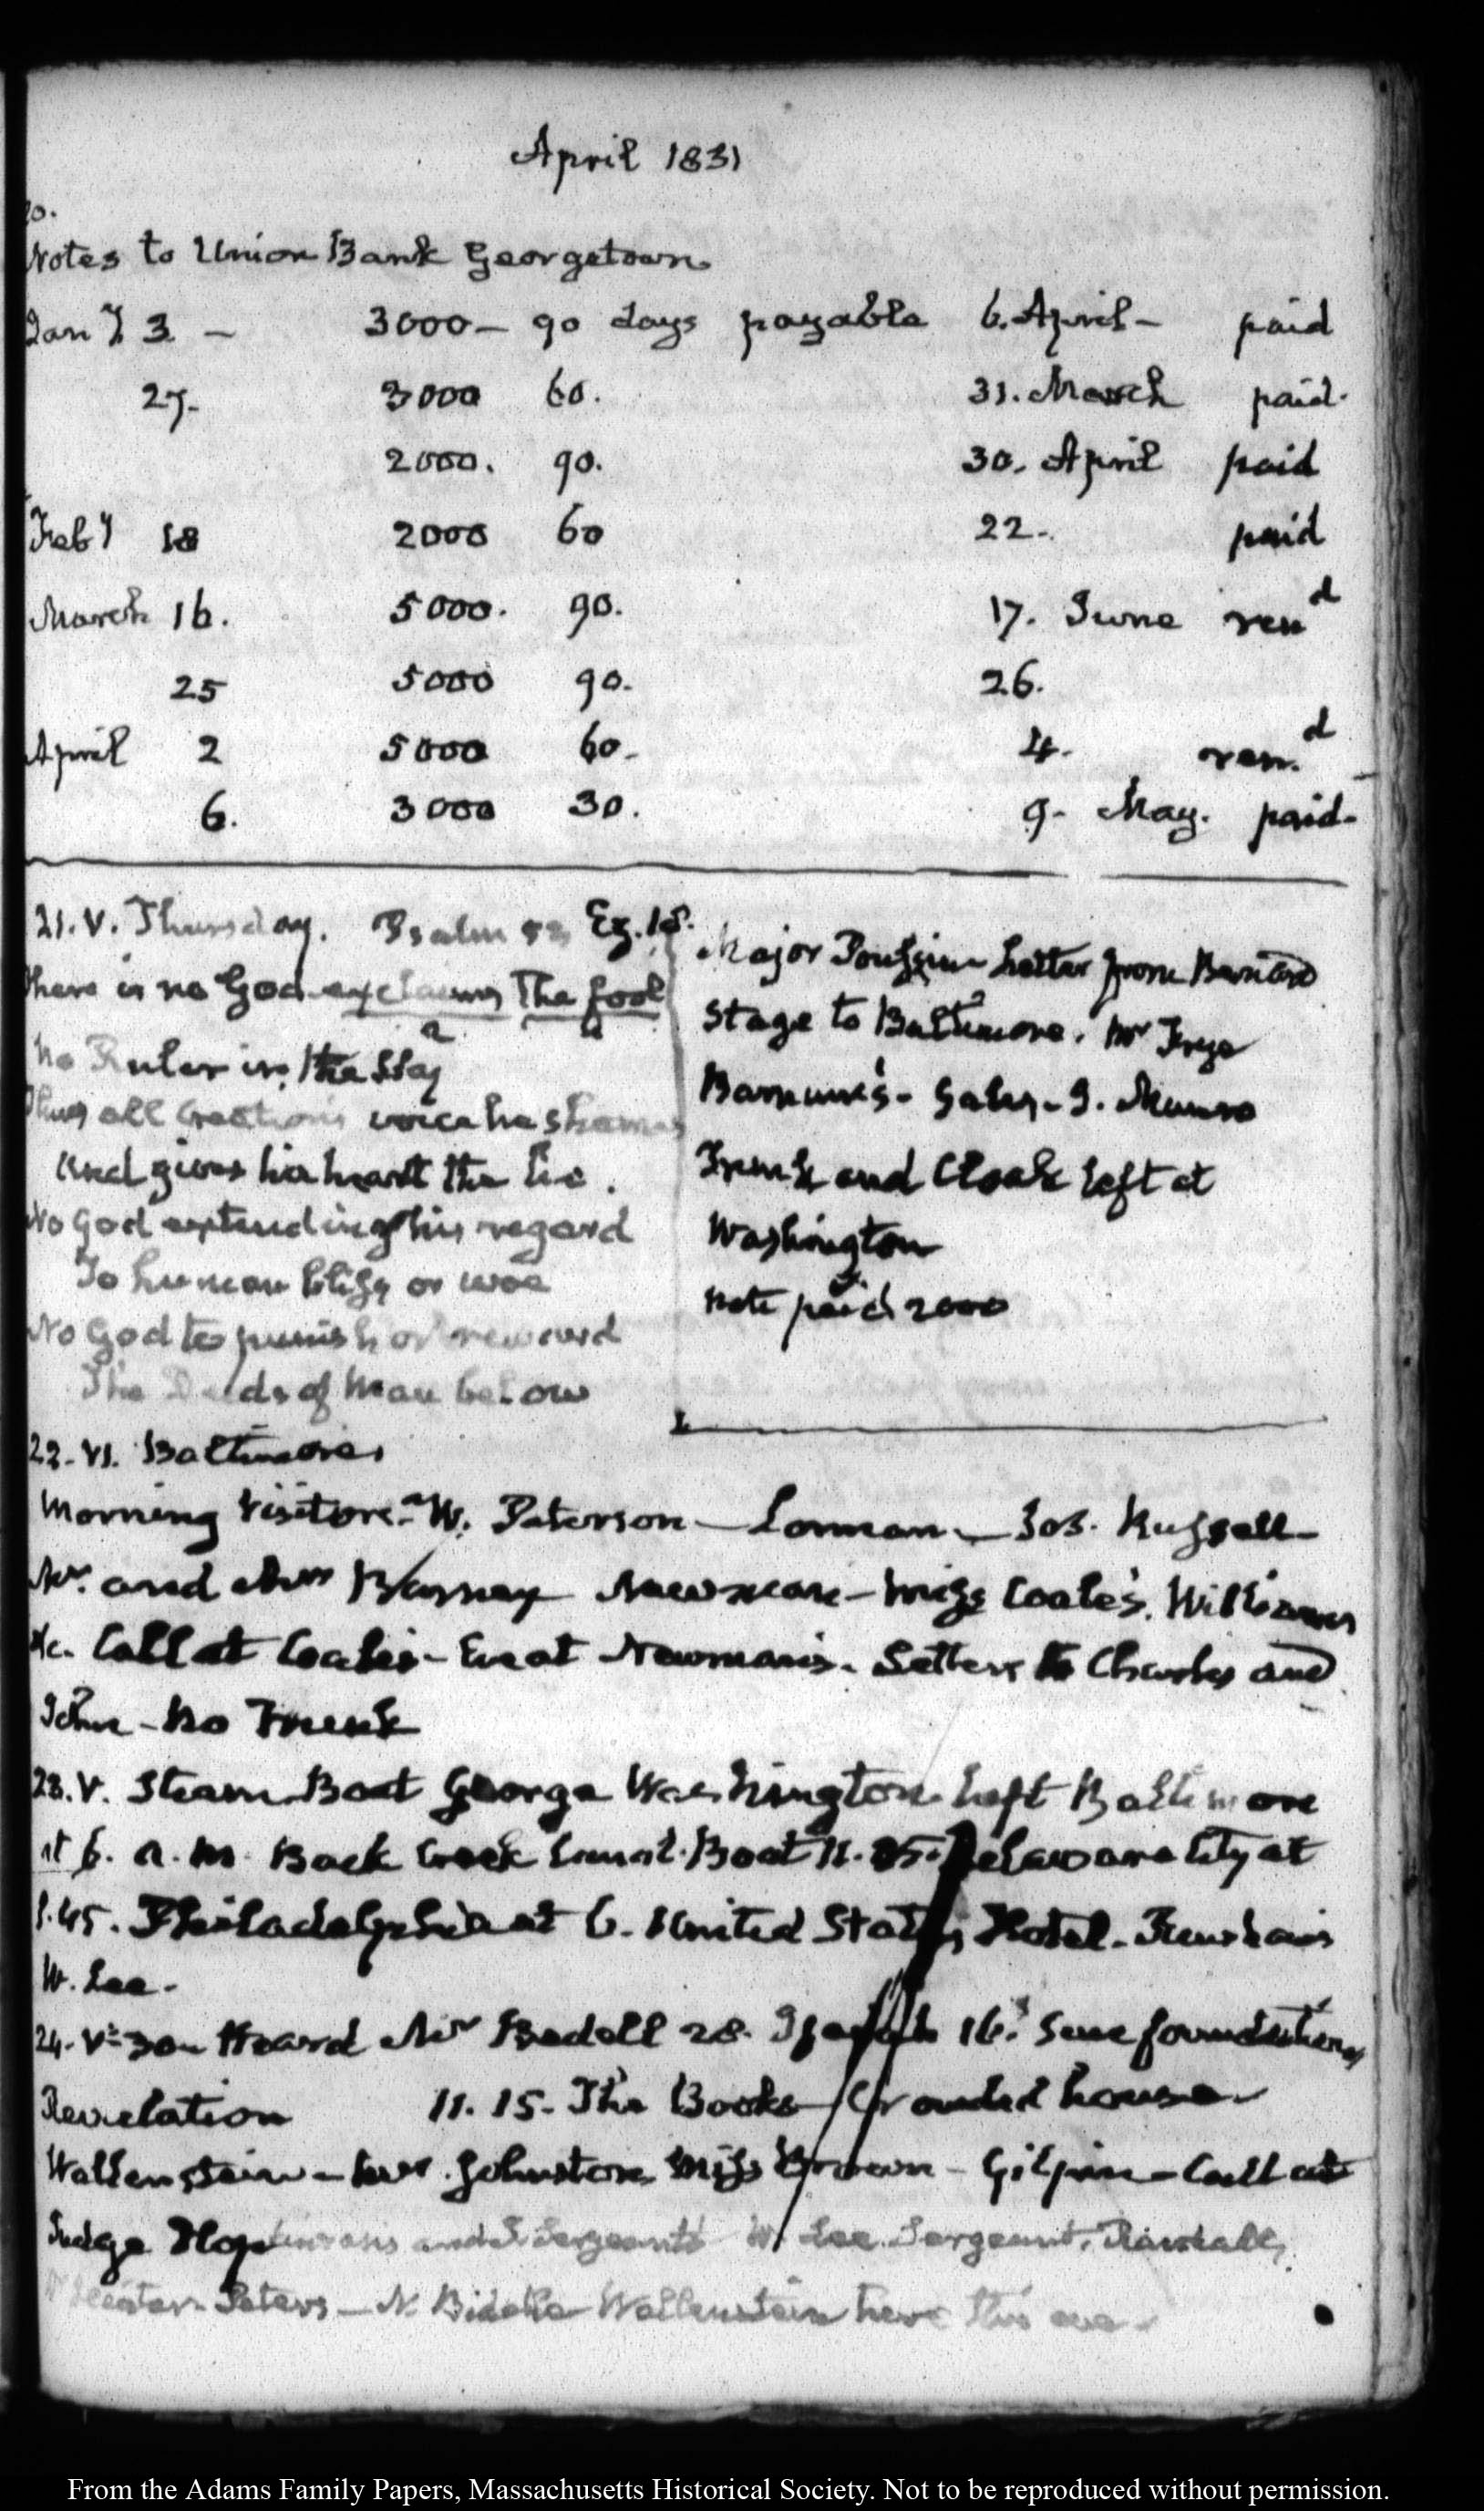 April 1831
20.
Notes to Union Bank Georgetown
Jany 3 — 3000 — 90 days payable 6. April — paid
27. 3000 60. 31. March paid.
2000. 90. 30. April paid
Feby 18 2000 60 22. paid
March 16. 5000. 90. 17. June rend
25 5000 90. 26.
April 2 5000 60. 4. ren.d
6. 3000 30. 9. May. paid.
21. V. Thursday. Psalm 53 Ez. 18.
There is no God exclaims The fool
No Ruler in the Sky
Thus all Creation's voice he shames
And gives his heart the lie.
No God extending his regard
To human bliss or woe
No God to punish or reward
The Deeds of Man below
Major Poussin Letter from Bernard
Stage to Baltimore. Mr Frye
Barnum's. J. Munro
Trunk and Cloak left at
Washington
Note paid 2000
22. VI. Baltimore
Morning Visitors. W. Paterson — Lorman — Jos. Russell —
Mr. and Mrs Barney Newman — Miss Coale's. Williams
&c. Call at Coale's — Eve at Newman's. Letters to Charles and
John — No Trunk
23. V. Steam Boat George Washington left Baltimore
at 6. A.M. Back Creek Canal. Boat 11.25. Delaware City at
1.45. Philadelphia at 6. United States Hotel.
W. Lee.
24. Heard Mr Bedell 28. Isaiah 16. Sure foundation
Revelation 11. 15. The Books Crowded house
Wallenstein — Johnston Miss Brown — Gilpin — Call at
Judge Hopkinson's and J. Sergeant's W. Lee. Sergeant.
Peters — N. Biddle Wallenstein here this eve.
From the Adams Family Papers, Massachusetts Historical Society. Not to be reproduced without permission.